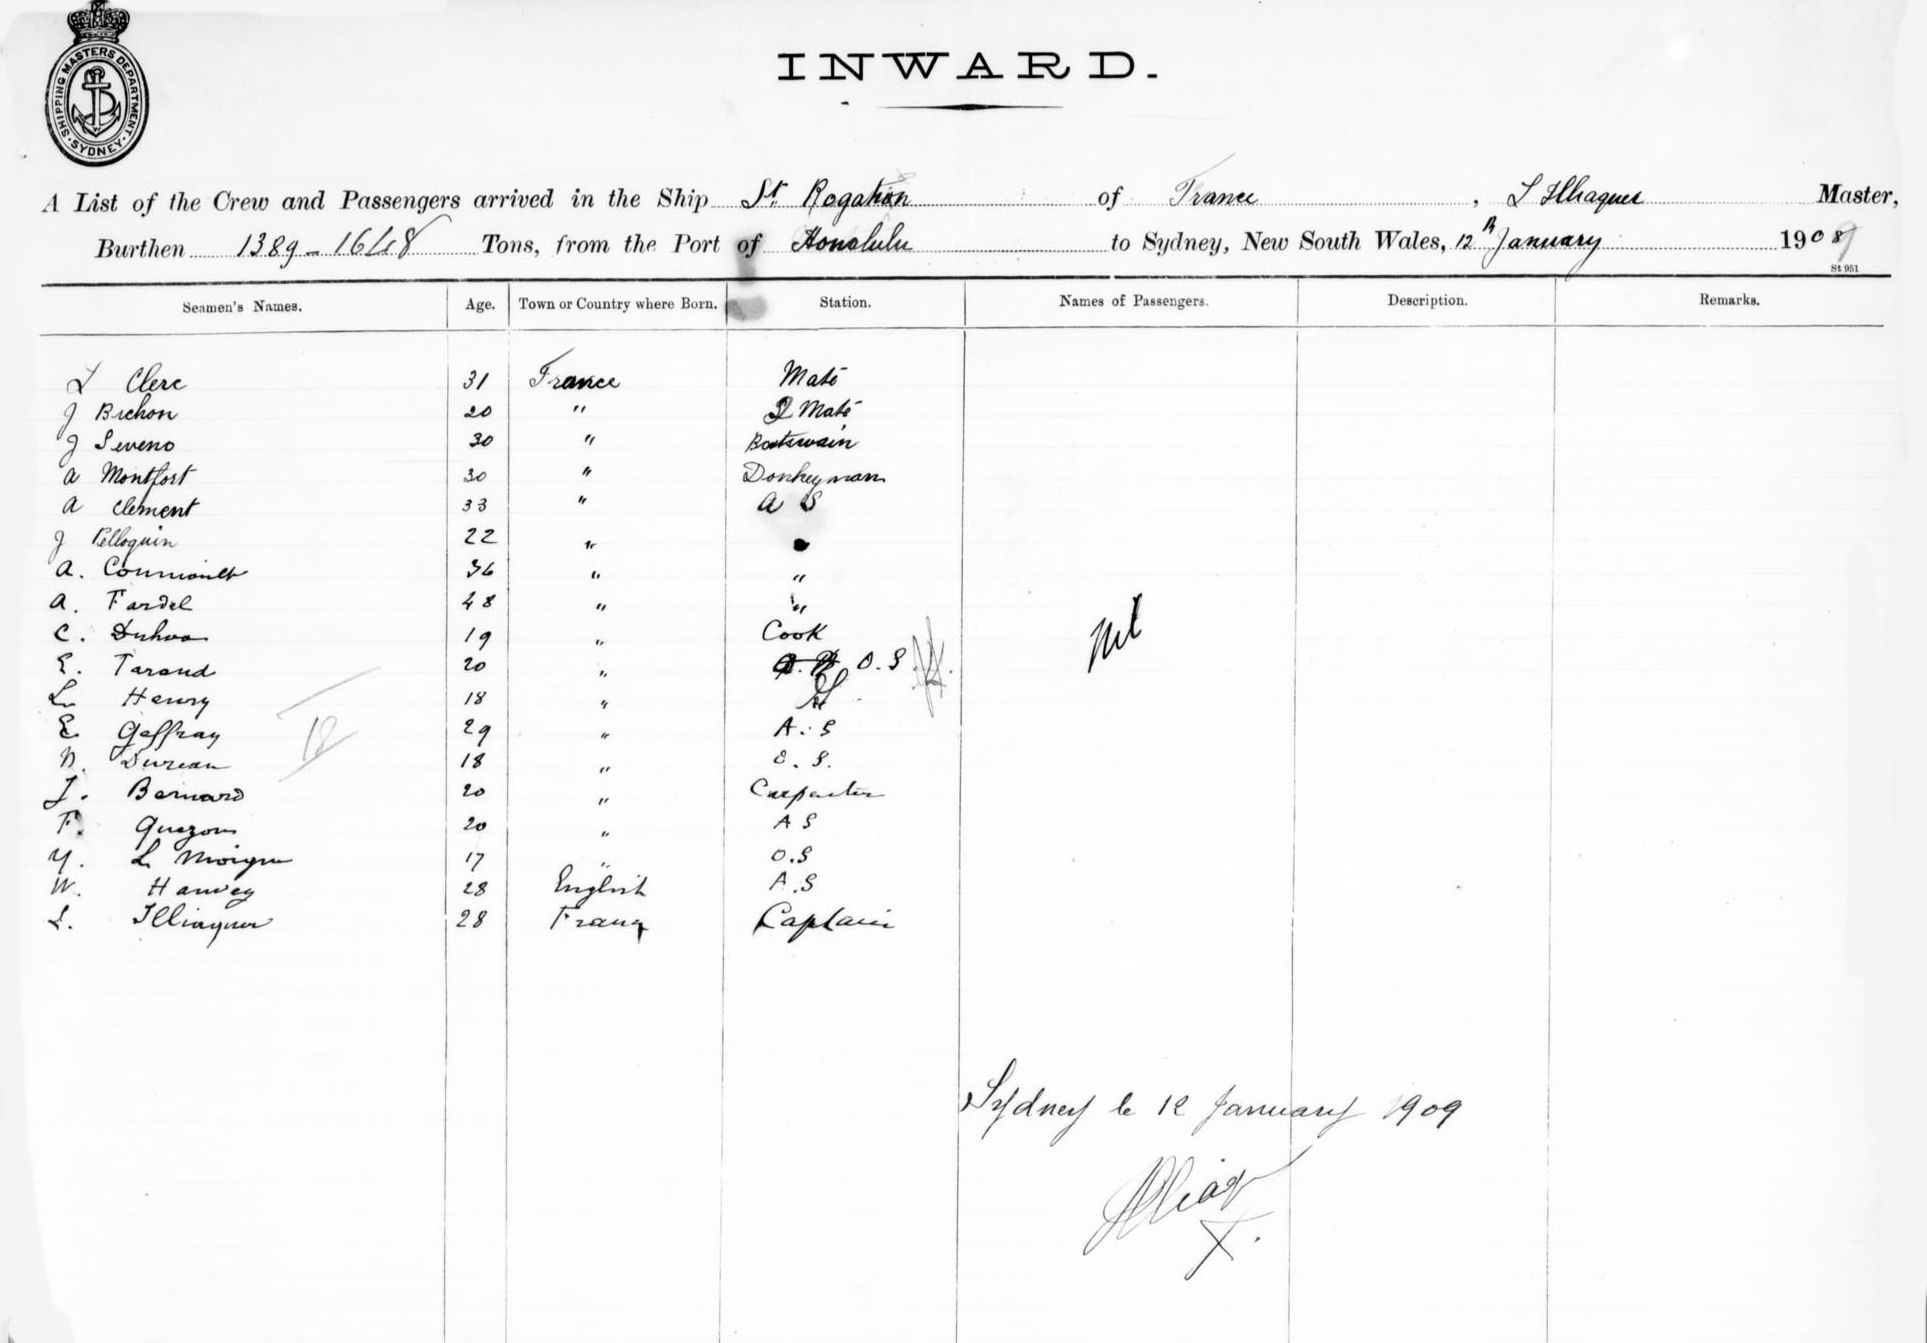 SHIPPING MASTERS DEPARTMENT
SYDNEY
INWARD.
A List of the Crew and Passengers arrived in the Ship St. Rogatien of France, L Illiaquer Master,
Burthen 1389 - 1648 Tons, from the Port of Honolulu to Sydney, New South Wales, 12th January 1908
St 951
Seamen's Names. Age. Town or Country where Born. Station. Names of Passengers. Description. Remarks.
L Clerc 31 France Mate
J Bichon 20 " 2 Mate
J Seveno 30 " Boatswain
A Montfort 30 " Donkeyman
A Clement 33 " A S
J Pelloquin 22 "
A. 36 " "
A. Fardel 48 " "
C. 19 " Cook
E. Tarand 20 " O.S
L Henry 18 "
Nil
E. Geffray 29 " A.S
18
N. Dureau 18 " O.S.
J. Bernard 20 " Carpenter
F. Quezon 20 " A S
Y. Le Moigne 17 " O.S
W. Harvey 28 English A.S
L. Illiaquer 28 France Captain
Sydney le 12 January 1909